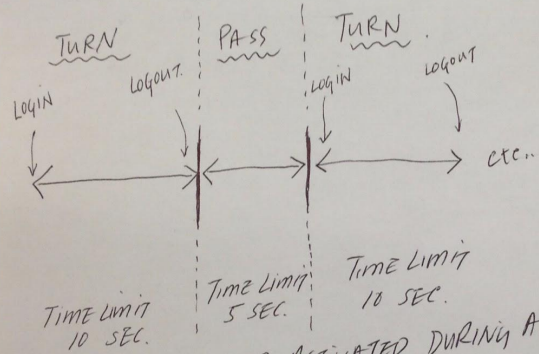 TURN PASS TURN
LOGIN LOGOUT LOGIN LOGOUT
etc..
TIME LIMIT TIME LIMIT TIME LIMIT
10 SEC. 5 SEC. 10 SEC.
DURING A